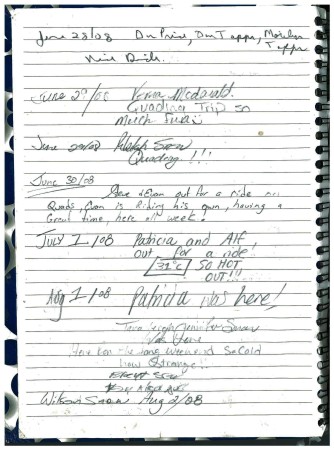 June 28/08 Don Price, Don Tapps, Marilyn
Tapps
Nice Ride.
June 29/08 Verna Mcdonald.
Quading Trip so
Much Fun
June 29/08 Ralph Snow
Quading !!!
June 30/08
Steve & Evan out for a ride on
Quads, Evan is Riding his own, having a
Great time, here all week.
JULY 1/08 Patricia and Alf
out for a ride!
31°C SO HOT
OUT!!!
Aug 1/08 Patricia was here!
Jennifer Snow
Was Here
Here for the long weekend So Cold
how Strange!!
Wilson Snow Aug 2/08